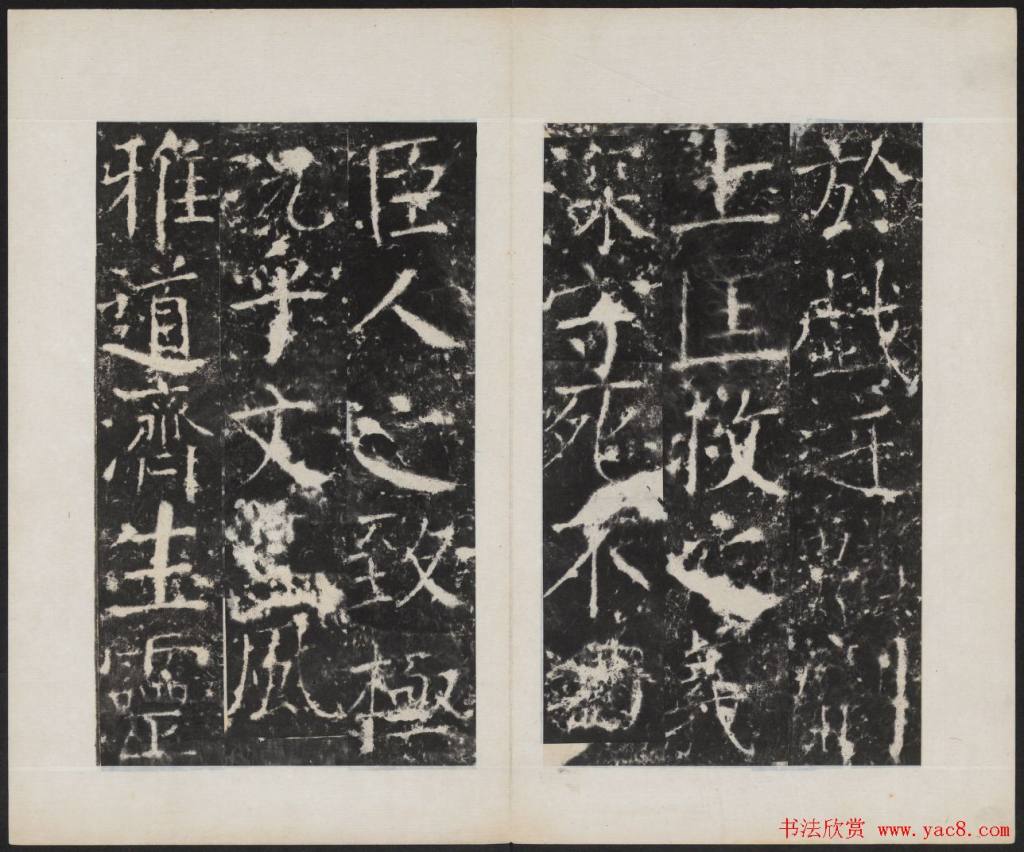 於戲
上匡救之義
死不
臣人之致極
況乎文風
雅道濟生靈
书法欣赏 www.yac8.com